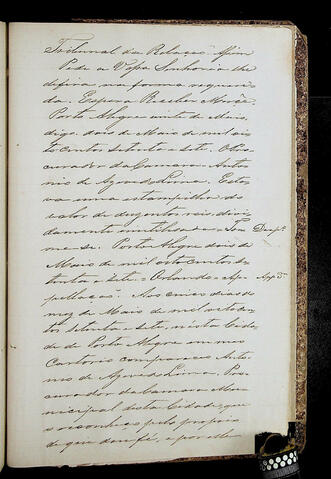 Tribunal da Relação. Assim
Pede a Vossa Senhoria lhe
defira na forma requeri-
da. Espera Receber Mercê.
Porto Alegre vinte de Maio,
digo, dois de Maio de mil oito
centos setenta e sete. O Pro-
curador da Camara. Anto-
nio de Azevedo Lima. Esta-
va uma estampilha do
valor de duzentos reis devi-
damente inutilisada. Tom
me-se. Porto Alegre dois de
Maio de mil oito centos se-
tenta e sete. Orlando. Ap-
pellação. Aos cinco dias do
mez de Maio de mil oito cen-
tos setenta e sete, nesta Cida-
de de Porto Alegre em meu
Cartorio compareceu Anto-
nio de Azevedo Lima, Pro-
curador da Camara Mu-
nicipal desta Cidade, que
reconheço pelo proprio
de que dou fé, e por elle